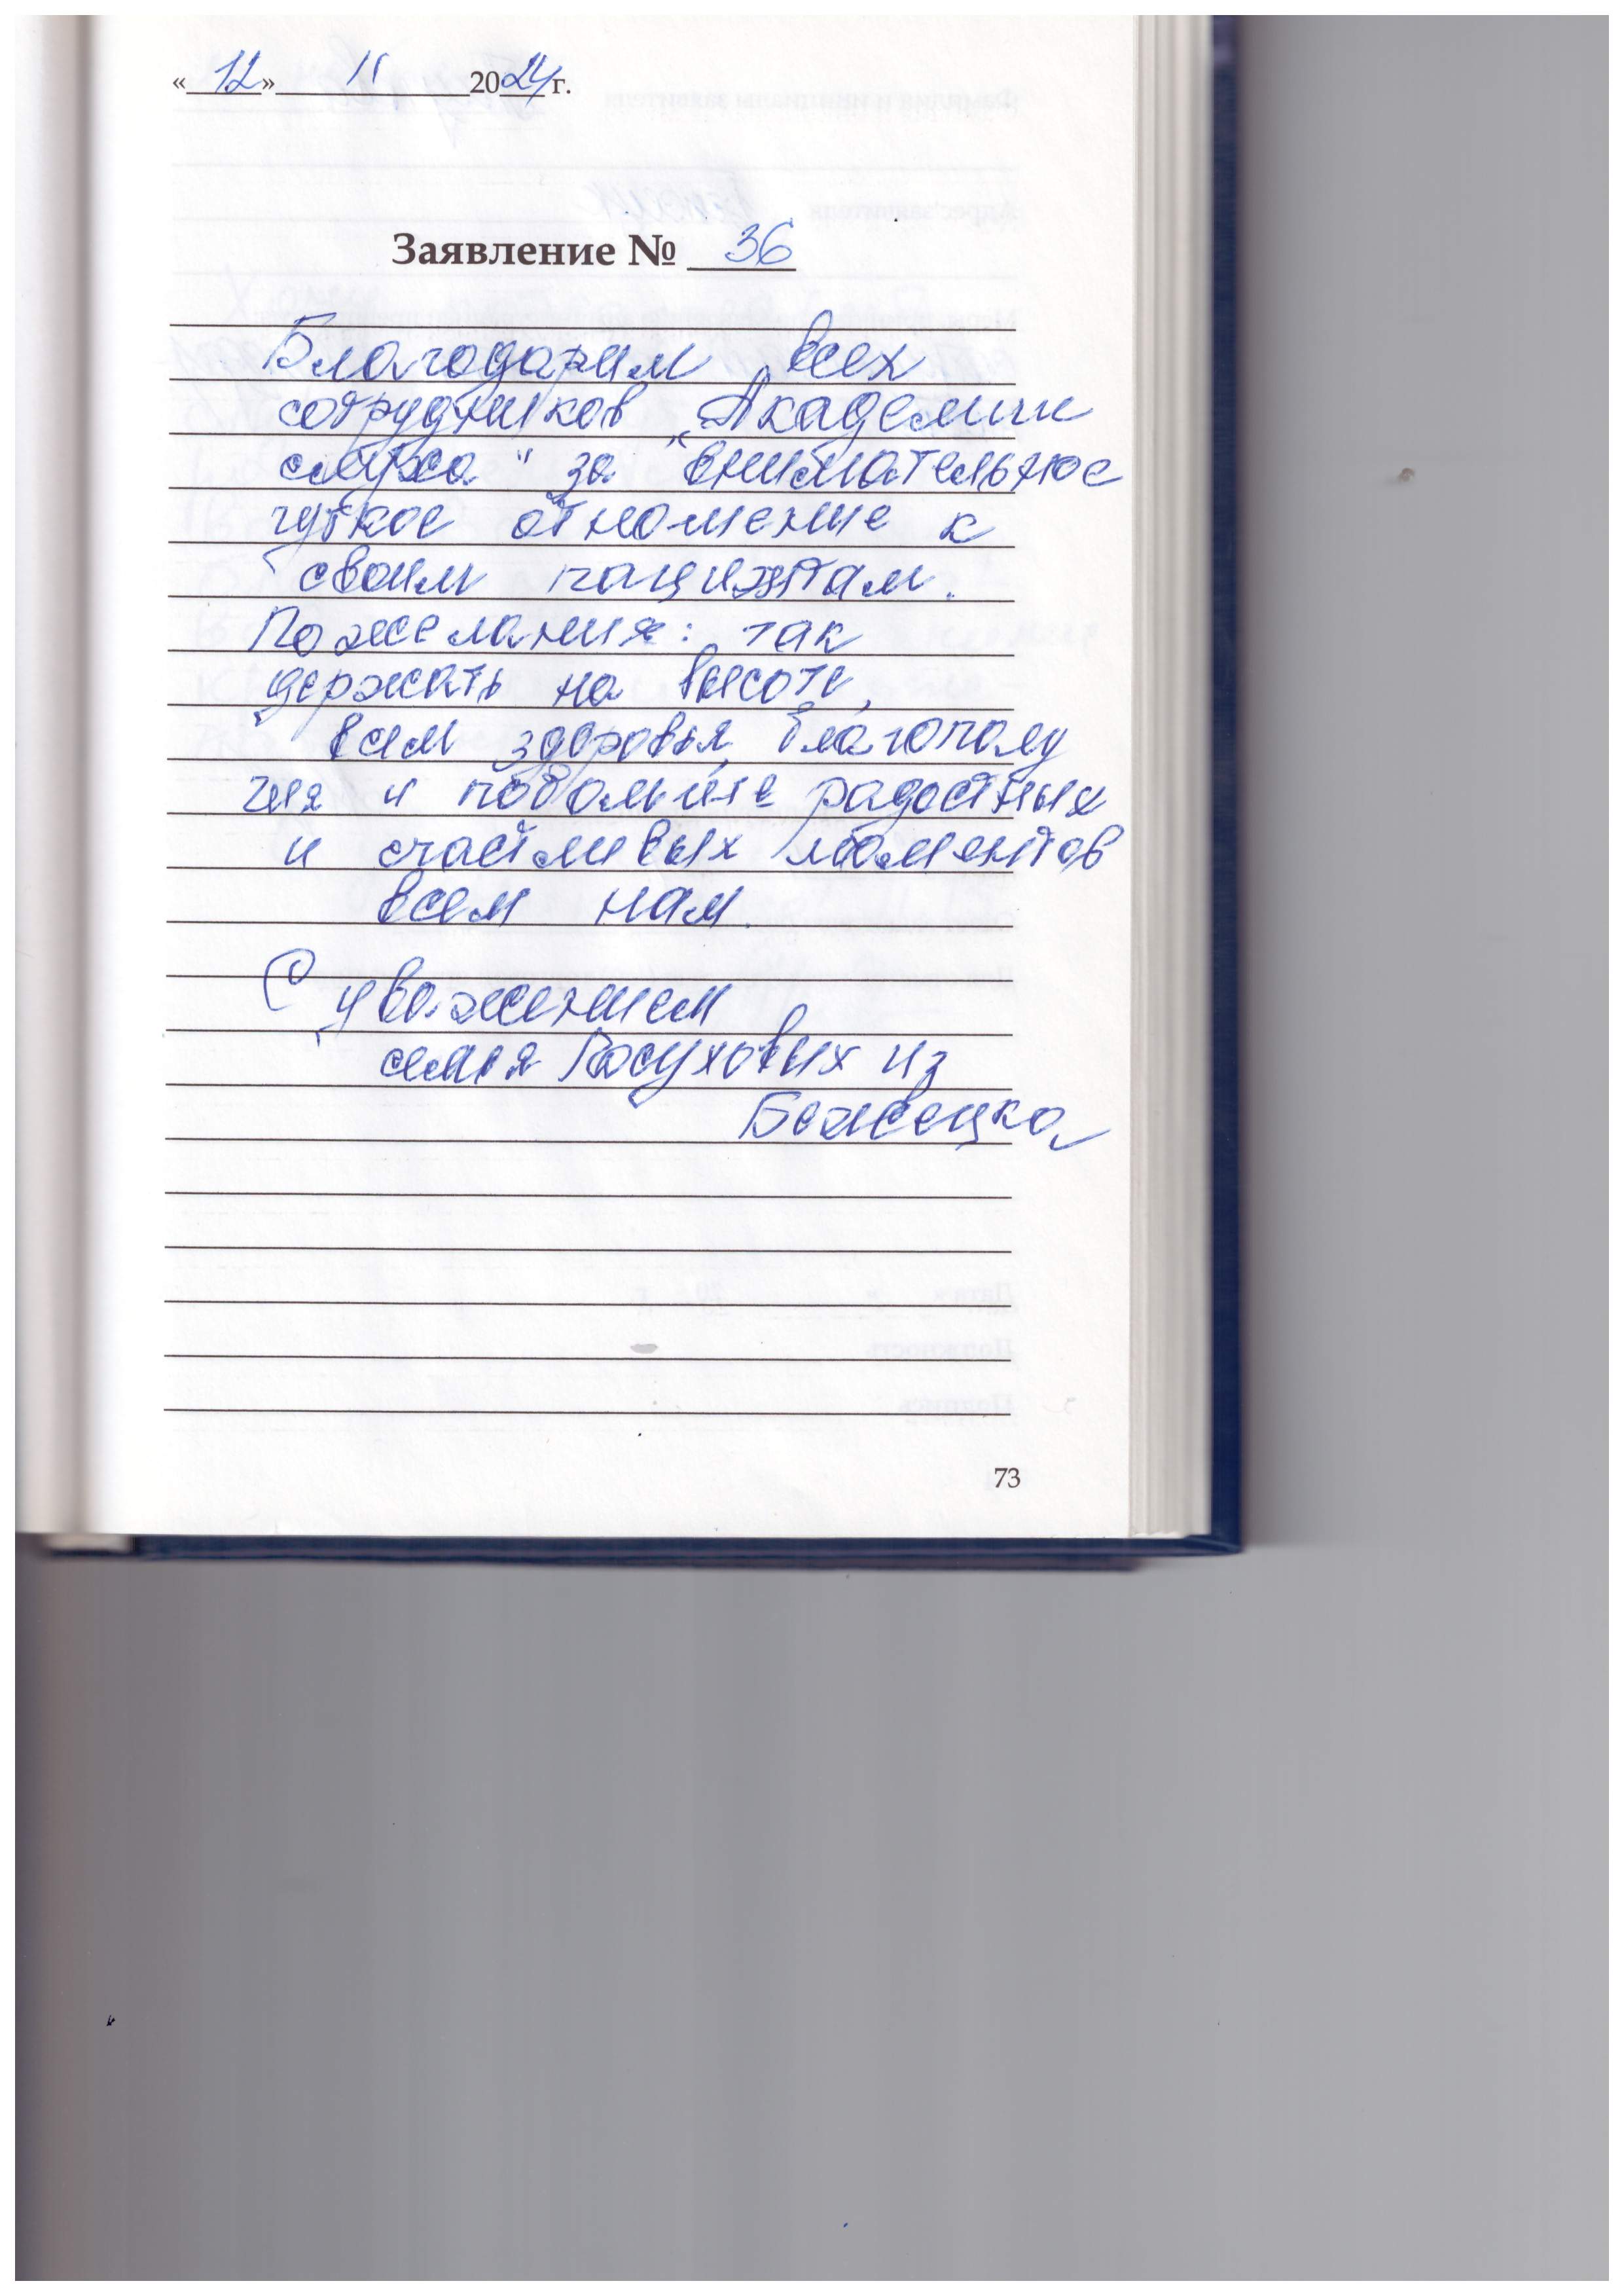 «12» 11 2024 г.
Заявление № 36
Благодарим всех
сотрудников „Академии
слуха“ за внимательное
чуткое отношение к
своим пациентам.
Пожелания: так
держать на высоте,
всем здоровья, благополу
чия и побольше радостных
и счастливых моментов
всем нам.
С уважением
семья из
Бежецка
73